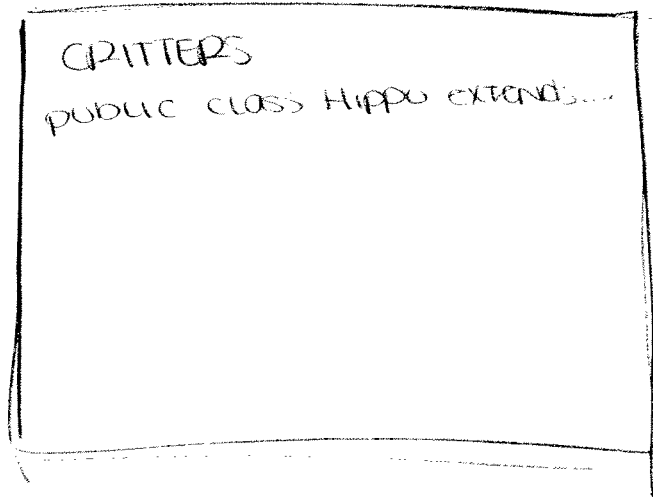 CRITTERS
public class Hippo extends....